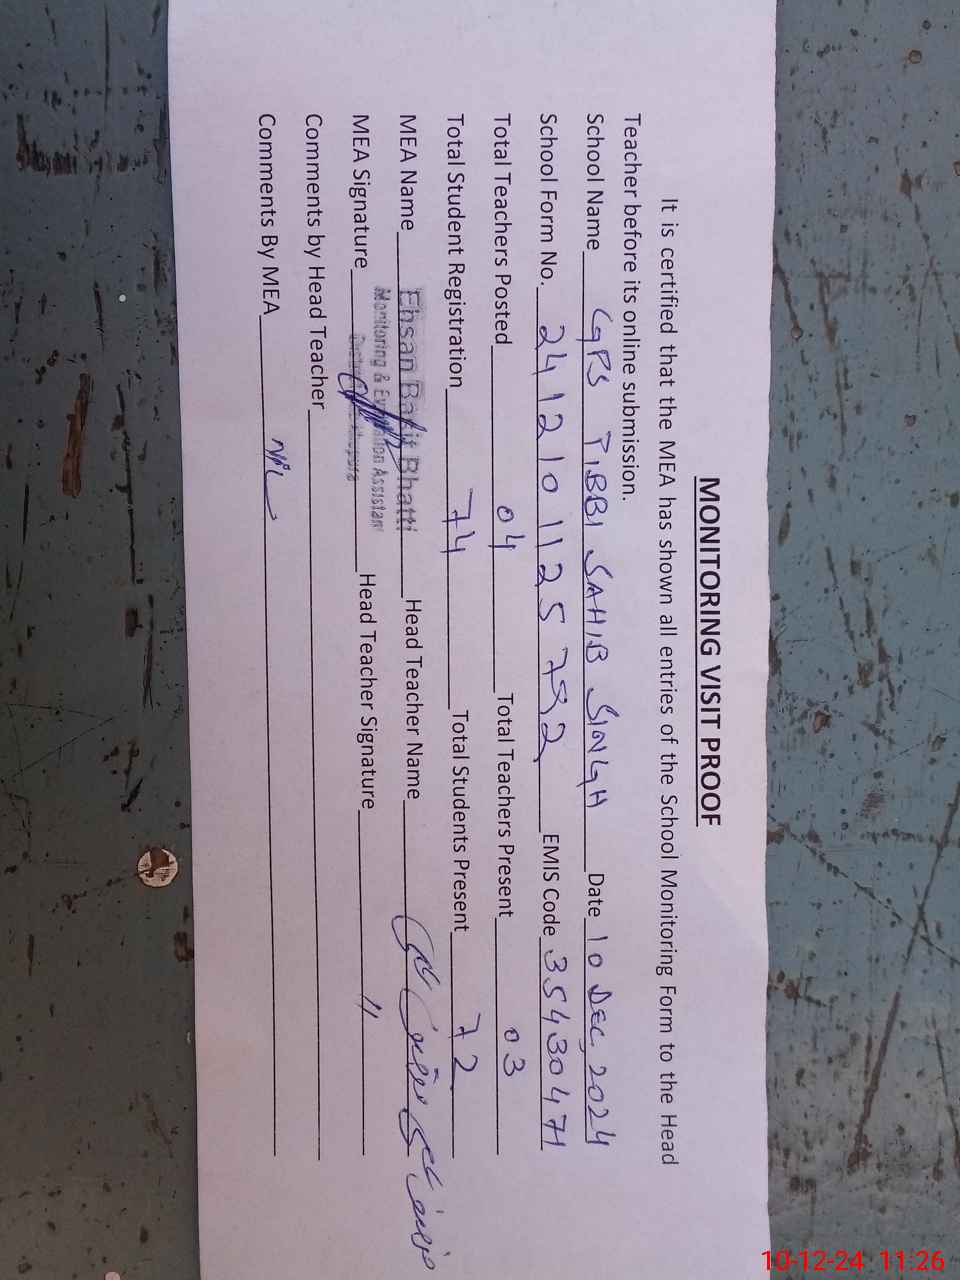 MONITORING VISIT PROOF
It is certified that the MEA has shown all entries of the School Monitoring Form to the Head
Teacher before its online submission.
School Name GPS TIBBI SAHIB SINGH Date 10 DEC, 2024
School Form No. 2412101125792 EMIS Code 35430471
Total Teachers Posted 04 Total Teachers Present 03
Total Student Registration 74 Total Students Present 72
MEA Name Ehsan Bari Bhatti Head Teacher Name
Monitoring & Evaluation Assistant
MEA Signature Head Teacher Signature "
Comments by Head Teacher
Comments By MEA Nil
10-12-24 11:26